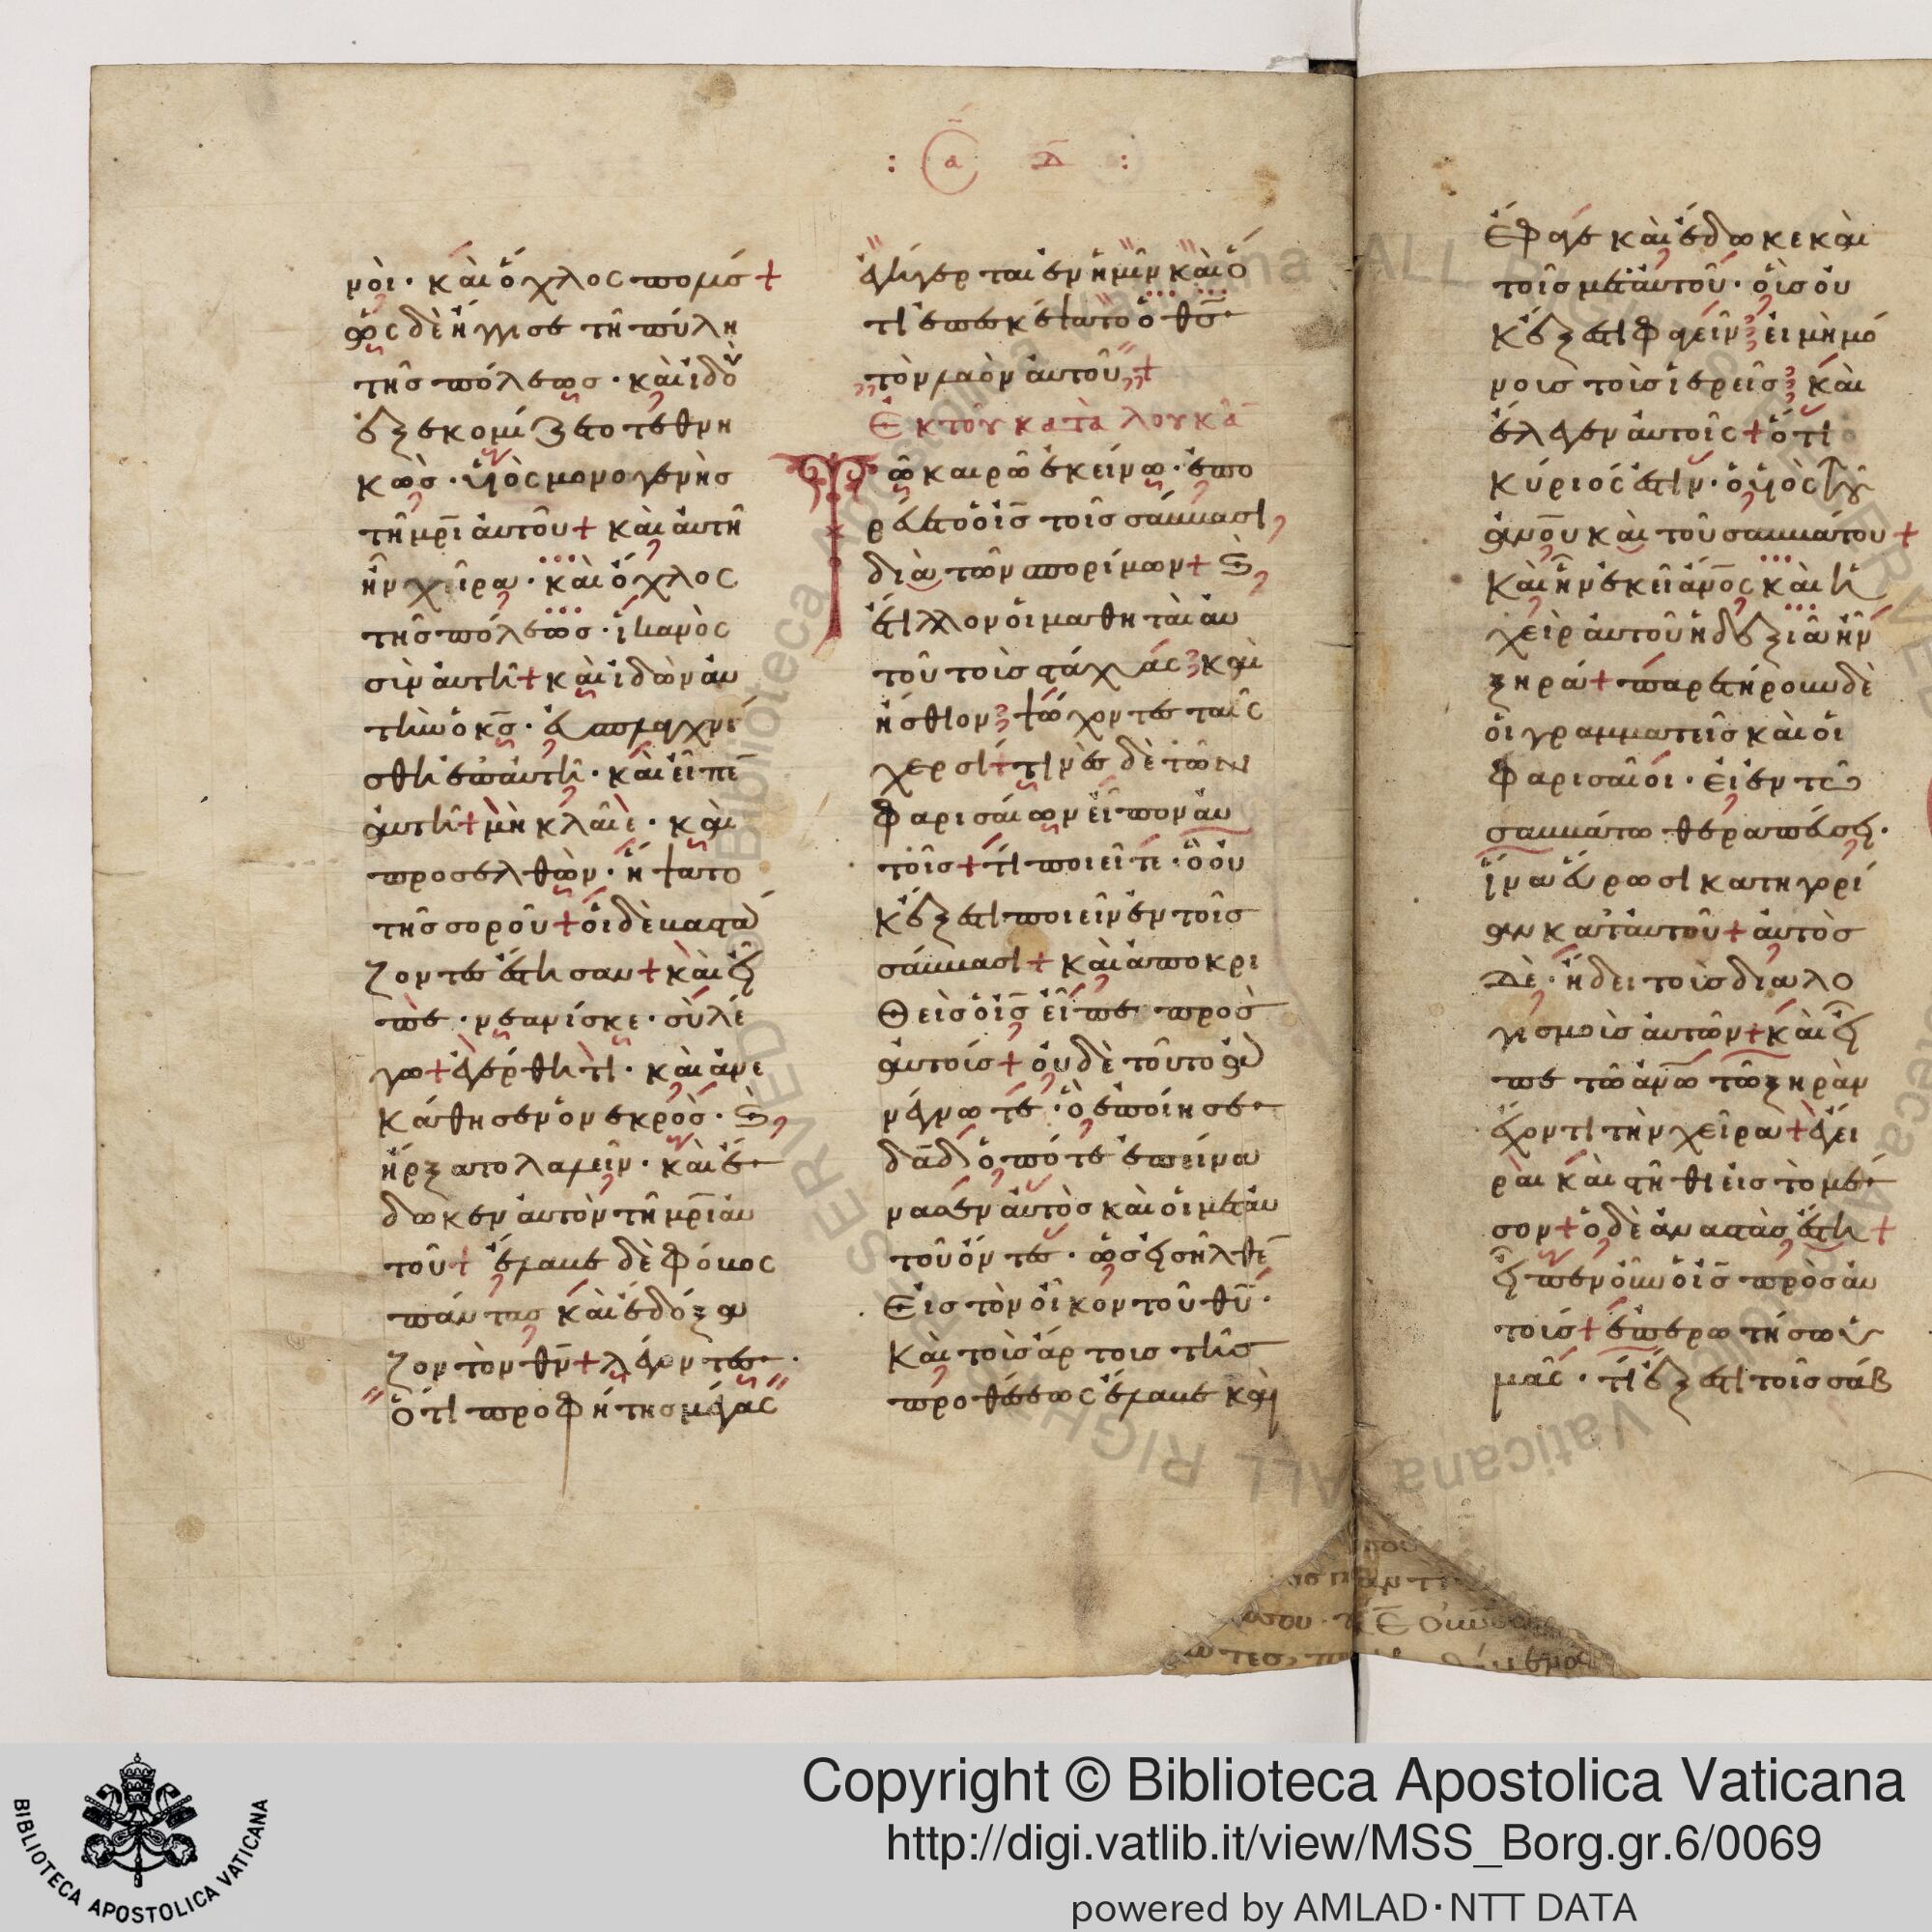 : α Δ :
νοὶ· καὶ ὄχλος πολύσ +
ὡς δὲ ἤγγισε τῆ πύλη
τῆσ πόλεωσ· καὶ ἰδοὺ
ἐξεκομίζετο τεθνη
κὼσ· υἱὸς μονογενὴσ
τῆ μρ̅ι αὐτοῦ + καὶ αὐτὴ
ἦν χήρα· καὶ ὄχλος
τῆσ πόλεωσ· ἱκανὸς
σὺν αὐτῆ + καὶ ἰδὼν αὐ
τὴν ὁ κ̅σ· ἐσπλαγχνί
σθη ἐπ' αὐτῆ· καὶ εἶπε̅
αὐτῆ + μὴ κλαῖε· καὶ
προσελθὼν· ἥψατο
τῆσ σοροῦ + οἱ δὲ βαστά
ζοντεσ ἔστησαν + καὶ εἶ
πε· νεανίσκε· σοὶ λέ
γω + ἐγέρθητι· καὶ ἀνε
κάθησεν ὁ νεκρὸσ· καὶ
ἤρξατο λαλεῖν· καὶ ἔ
δωκεν αὐτὸν τῆ μρ̅ι αὐ
τοῦ + ἔλαβε δὲ φόβος
πάντας καὶ ἐδόξα
ζον τὸν θ̅ν + λέγοντεσ·
ὅτι προφήτησ μέγας
ἐγήγερται ἐν ἡμῖν καὶ ὅ
τι ἐπεσκέψατο ὁ θ̅σ
τὸν λαὸν αὐτοῦ +
Ἐκ τοῦ κατὰ λουκᾶ
Τῶ καιρῶ ἐκείνω· ἐπο
ρεύετο ὁ ι̅σ τοῖσ σάββασι
διὰ τῶν σπορίμων + καὶ
ἔτιλλον οἱ μαθηταὶ αὐ
τοῦ τοὺσ στάχυας καὶ
ἤσθιον ψώχοντεσ ταῖς
χερσί + τινὲσ δὲ τῶν
φαρισαίων εἶπον αὐ
τοῖσ + τί ποιεῖτε· ὃ οὐ
κ ἔξεστι ποιεῖν ἐν τοῖσ
σάββασι + καὶ ἀποκρι
θεὶσ ὁ ι̅σ εἶπε προσ
αὐτούσ + οὐδὲ τοῦτο ἀ
νέγνωτε· ὃ ἐποίησε
δα̅δ ὁπότε ἐπείνα
σεν αὐτὸσ καὶ οἱ μετ' αὐ
τοῦ ὄντεσ· ὡσ εἰσῆλθε̅
εἰσ τὸν οἶκον τοῦ θ̅υ·
καὶ τοὺσ ἄρτουσ τῆσ
προθέσεως ἔλαβε καὶ
ἔφαγε καὶ ἔδωκε καὶ
τοῖσ μετ' αὐτοῦ· οὓσ οὐ
κ ἔξεστι φαγεῖν εἰ μὴ μό
νουσ τοὺσ ἱερεῖσ καὶ
ἔλεγεν αὐτοῖς + ὅτι
κύριός ἐστιν· ὁ υἱὸς τοῦ
ἀν̅ου καὶ τοῦ σαββάτου +
καὶ ἦν ἐκεῖ ἄν̅ος καὶ ἡ
χεὶρ αὐτοῦ ἡ δεξιὰ ἦν
ξηρά + παρετήρουν δὲ
οἱ γραμματεῖσ καὶ οἱ
φαρισαῖοι· εἰ ἐν τῶ
σαββάτω θεραπεύσει·
ἵνα εὕρωσι κατηγορί
αν κατ' αὐτοῦ + αὐτὸσ
δὲ· ἤδει τοὺσ διαλο
γισμοὺσ αὐτῶν + καὶ εἶ
πε τῶ ἀν̅ω τῶ ξηρὰν
ἔχοντι τὴν χεῖρα + ἔγει
ραι καὶ στῆθι εἰσ τὸ μέ
σον + ὁ δὲ ἀναστὰσ ἔστη +
εἶπεν οὖν ὁ ι̅σ πρὸσ αὐ
τούσ + ἐπερωτήσω ὑ
μᾶς· τί ἔξεστι τοῖσ σάβ
Copyright © Biblioteca Apostolica Vaticana
http://digi.vatlib.it/view/MSS_Borg.gr.6/0069
powered by AMLAD·NTT DATA
BIBLIOTECA APOSTOLICA VATICANA